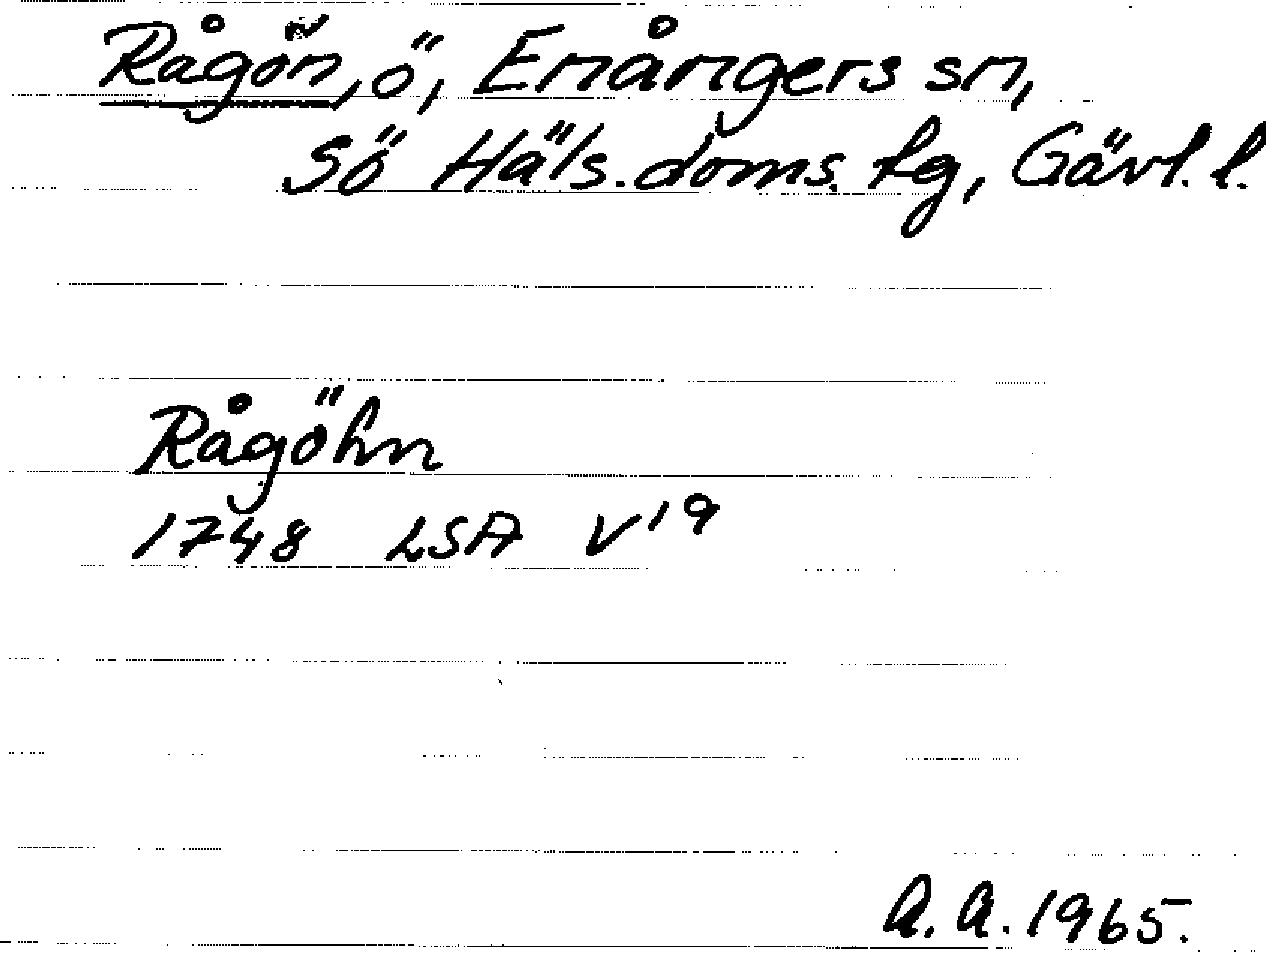 Rågön, ö, Enångers sn,
Sö Häls. doms. tg, Gävl. l.
Rågöhn
1748 LSA V 19
A. A. 1965.